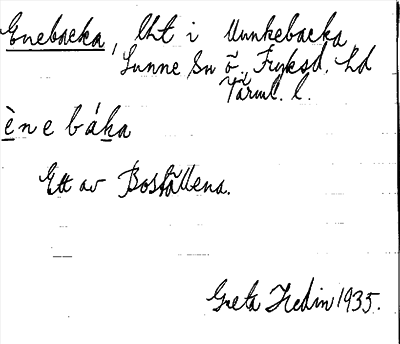 Enebacka, lht i Munkebacka
Sunne sn ö., Fryksd. hd
Värml. l.
è n e b á k a
Ett av Boställena.
Greta Hedin 1935.